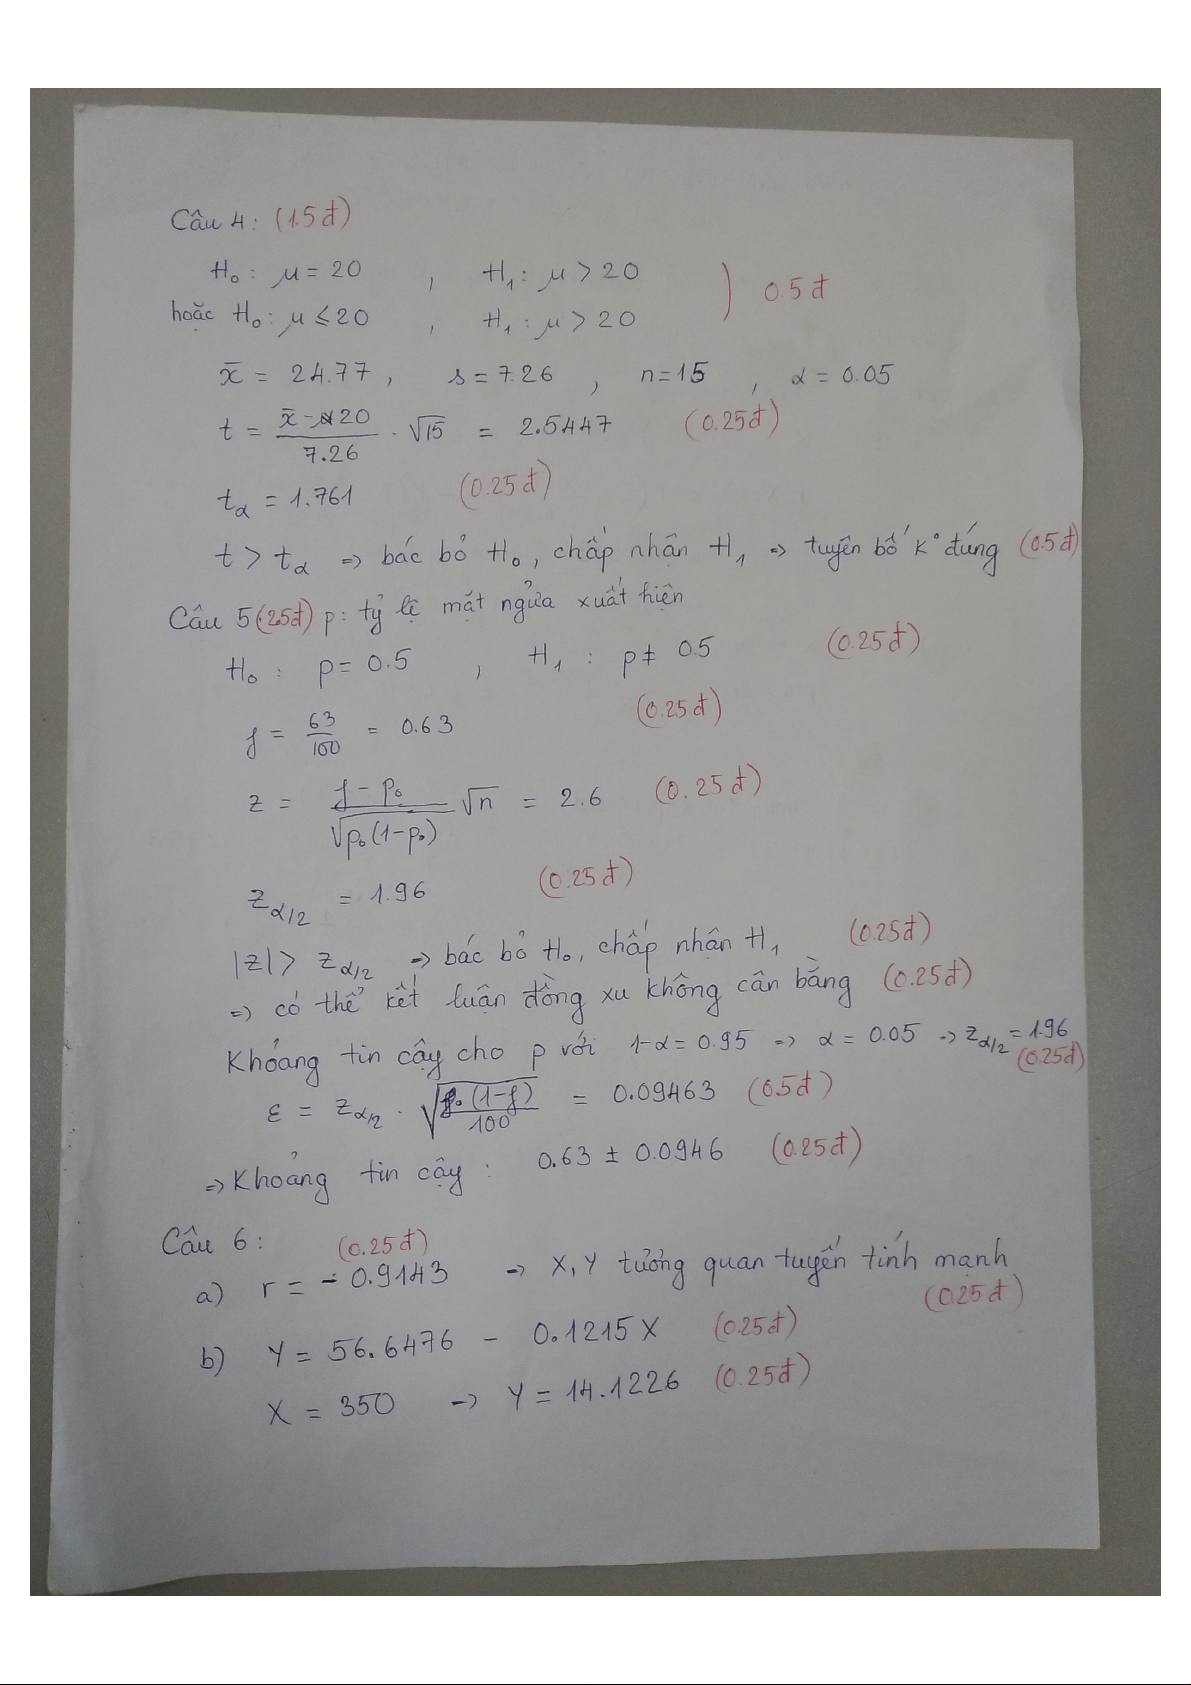 Câu 4: (1.5đ)
H₀: μ = 20 , H₁: μ > 20 ) 0.5đ
hoặc H₀: μ ≤ 20 , H₁: μ > 20
x̄ = 24.77, s = 7.26 , n=15 , α = 0.05
t = (x̄ - 20)/7.26 · √15 = 2.5447 (0.25đ)
tα = 1.761 (0.25đ)
t > tα => bác bỏ H₀, chấp nhận H₁ => tuyên bố k° đúng (0.5đ)
Câu 5 (2.5đ) p: tỷ lệ mặt ngửa xuất hiện
H₀ : p = 0.5 , H₁ : p ≠ 0.5 (0.25đ)
f = 63/100 = 0.63 (0.25đ)
z = (f - p₀)/√(p₀(1-p₀)) √n = 2.6 (0.25đ)
z α/2 = 1.96 (0.25đ)
|z| > z α/2 => bác bỏ H₀, chấp nhận H₁ (0.25đ)
=> có thể kết luận đồng xu không cân bằng (0.25đ)
Khoảng tin cậy cho p với 1-α = 0.95 => α = 0.05 -> z α/2 = 1.96 (0.25đ)
ε = z α/2 · √(f(1-f)/100) = 0.09463 (0.5đ)
=> Khoảng tin cậy : 0.63 ± 0.0946 (0.25đ)
Câu 6: (0.25đ)
a) r = - 0.9143 -> X, Y tương quan tuyến tính mạnh (0.25đ)
b) Y = 56.6476 - 0.1215 X (0.25đ)
X = 350 -> Y = 14.1226 (0.25đ)